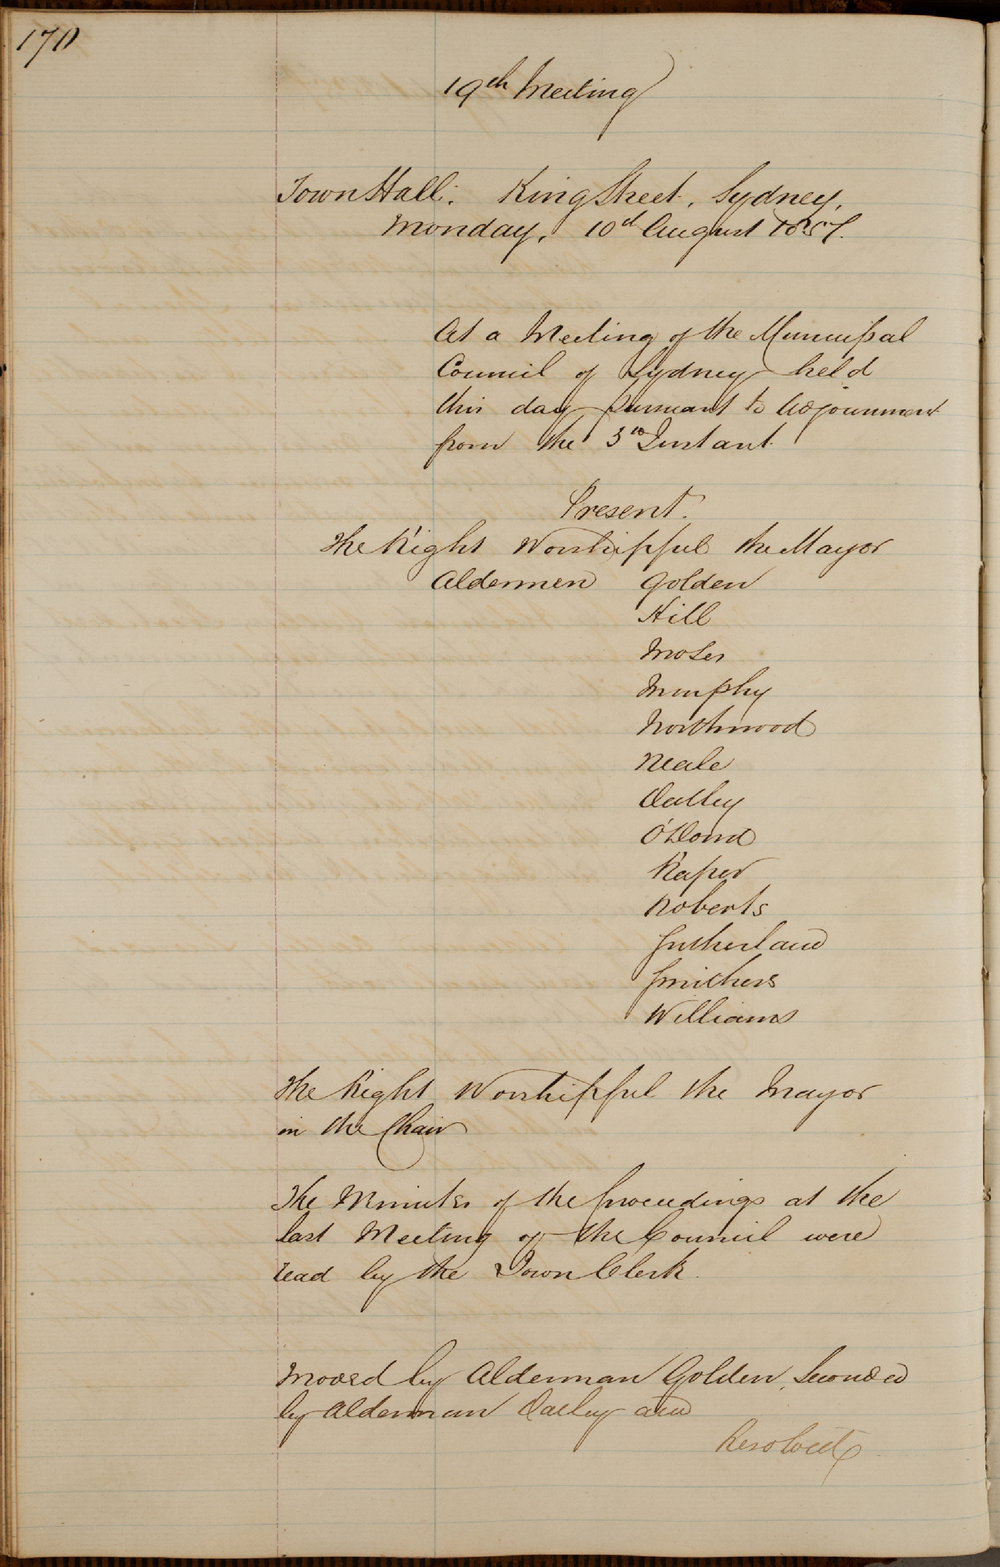 170
19th Meeting
Town Hall. King Street, Sydney,
Monday, 10th August 1857.
At a Meeting of the Municipal
Council of Sydney held
this day pursuant to Adjournment
from the 3rd Instant.
Present.
The Right Worshipful the Mayor
Aldermen Golden
Hill
Moses
Murphy
Northwood
Neale
Oatley
O'Dowd
Raper
Roberts
Sutherland
Smithers
Williams
The Right Worshipful the Mayor
in the Chair
The Minutes of the proceedings at the
last Meeting of the Council were
read by the Town Clerk.
Moved by Alderman Golden, Seconded
by Alderman Oatley and
Resolved